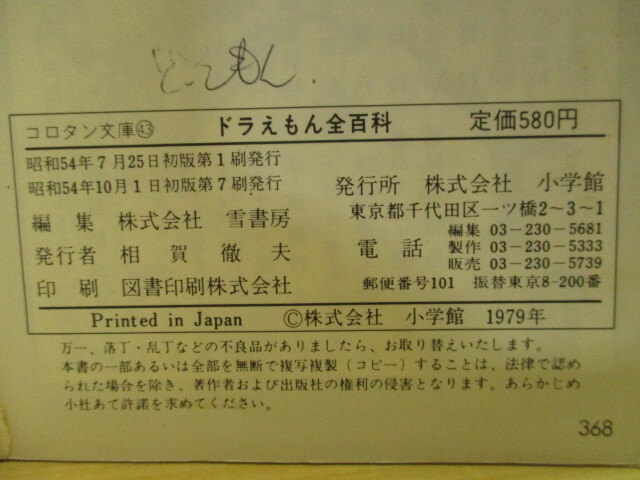 コロタン文庫㊸ ドラえもん全百科 定価580円
昭和54年7月25日初版第1刷発行
昭和54年10月1日初版第7刷発行
編集 株式会社 雪書房
発行者 相賀徹夫
印刷 図書印刷株式会社
発行所 株式会社 小学館
東京都千代田区一ツ橋2〜3〜1
電話 編集 03−230−5681
製作 03−230−5333
販売 03−230−5739
郵便番号101 振替東京8-200番
Printed in Japan Ⓒ株式会社 小学館 1979年
万一、落丁・乱丁などの不良品がありましたら、お取り替えいたします。
本書の一部あるいは全部を無断で複写複製(コピー)することは、法律で認め
られた場合を除き、著作者および出版社の権利の侵害となります。あらかじめ
小社あて許諾を求めてください。
368